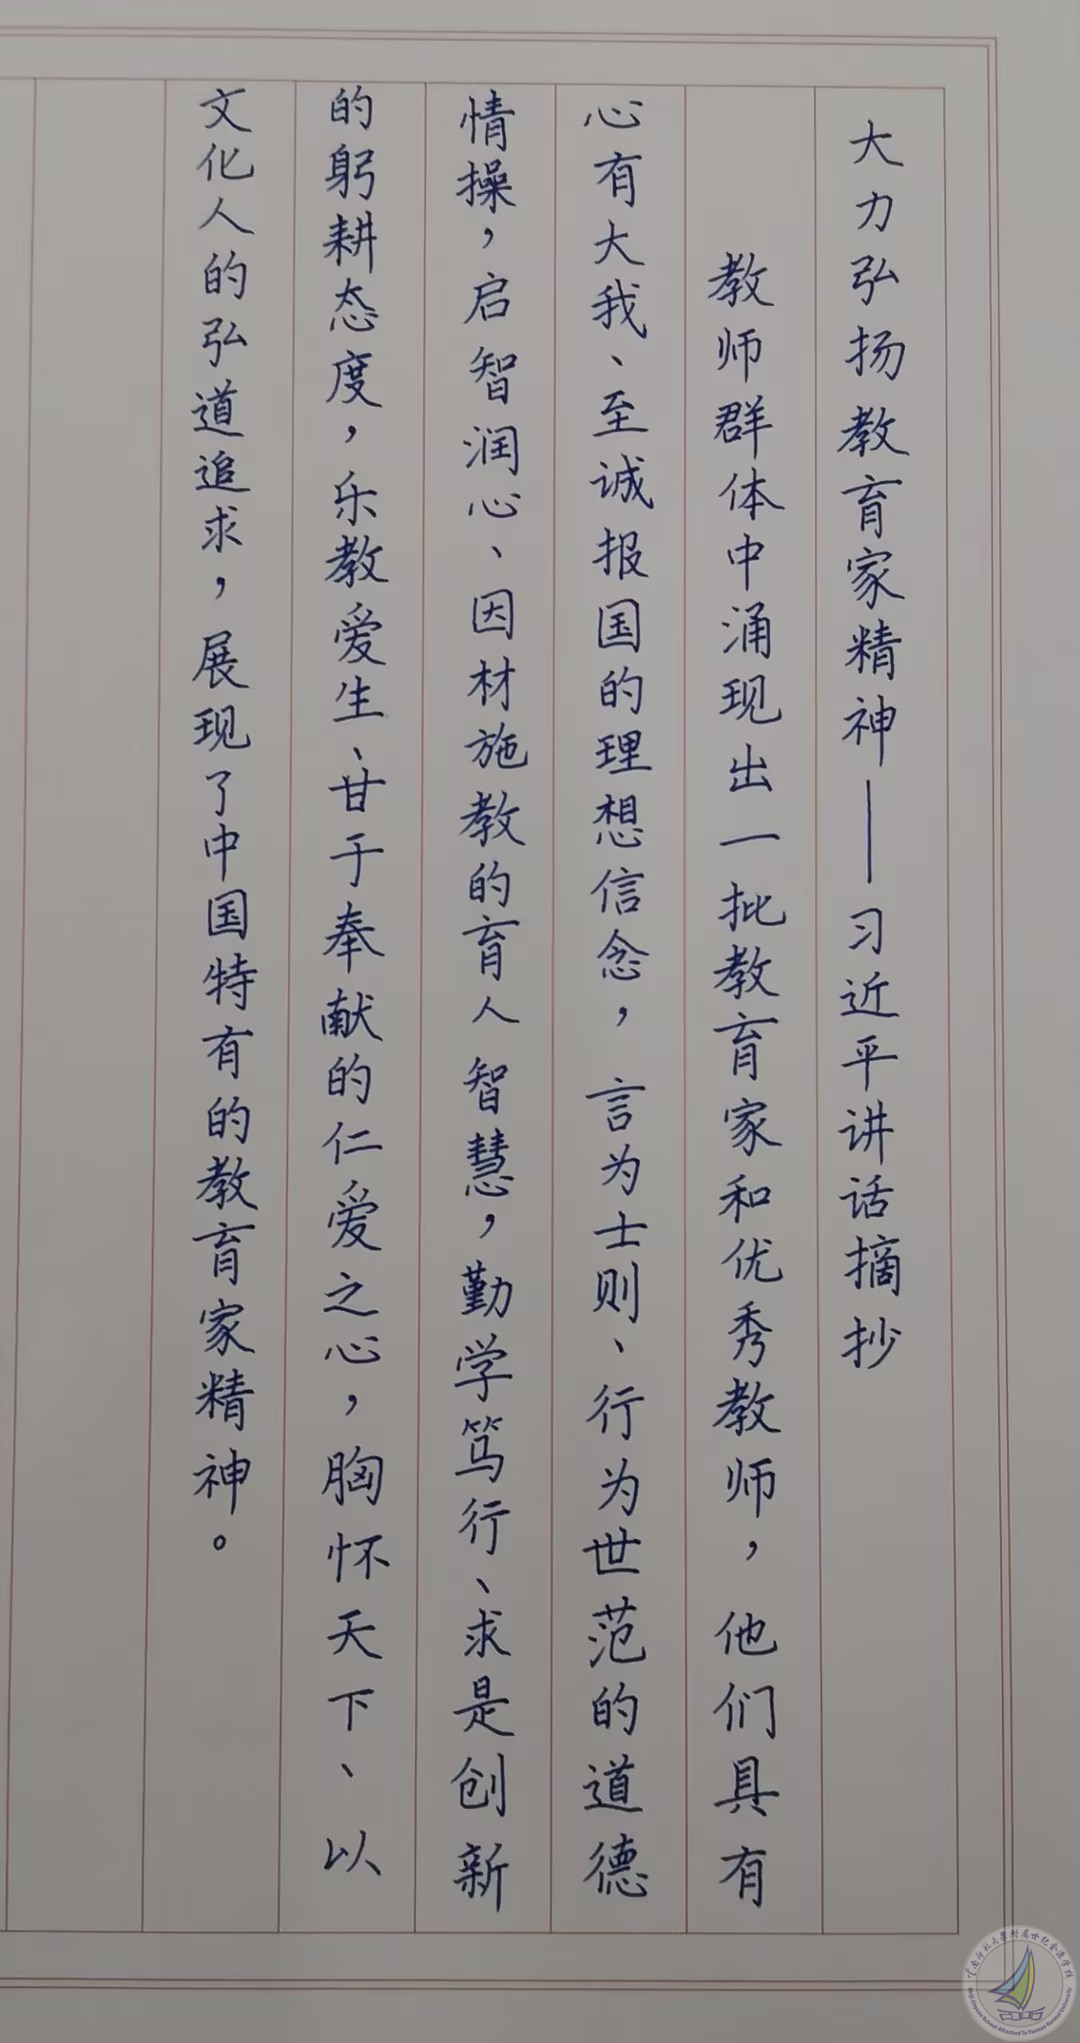 大力弘扬教育家精神——习近平讲话摘抄
教师群体中涌现出一批教育家和优秀教师，他们具有
心有大我、至诚报国的理想信念，言为士则、行为世范的道德
情操，启智润心、因材施教的育人智慧，勤学笃行、求是创新
的躬耕态度，乐教爱生、甘于奉献的仁爱之心，胸怀天下、以
文化人的弘道追求，展现了中国特有的教育家精神。
云南师范大学附属世纪金源学校